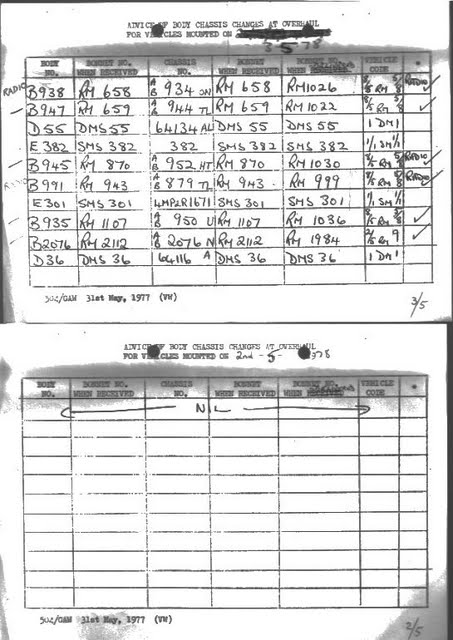 ADVICE OF BODY CHASSIS CHANGES AT OVERHAUL
FOR VEHICLES MOUNTED ON
3-5-78
BODY NO. BONNET NO. WHEN RECEIVED CHASSIS NO. BONNET WHEN RECEIVED BONNET NO. VEHICLE CODE *
RADIO B938 RM 658 A/B 934 RM 658 RM1026 8/5 RM 5/8 RADIO ✓
B947 RM 659 A/B 944 TL RM 659 RM 1022 8/5 RM 5/8 ✓
D55 DMS 55 64134 AL DMS 55 DMS 55 1 DM1
E 382 SMS 382 382 SMS 382 SMS 382 1/1 SM 1/1
B945 RM 870 A/B 952 HT RM 870 RM 1030 8/5 RM 5/8 RADIO ✓
RADIO B991 RM 943 A/B 879 TL RM 943 RM 999 8/5 RM 8 RADIO ✓
E301 SMS 301 4MP2R1671 SMS 301 SMS 301 1/1 SM 1/1
B935 RM 1107 A/B 950 U RM 1107 RM 1036 8/5 RM 8 ✓
B2076 RM 2112 A/B 2076 N RM 2112 RM 1984 2/5 RM 9 ✓
D36 DMS 36 64116 A DMS 36 DMS 36 1 DM1
502/GAW 31st May, 1977 (VW)
3/5
ADVICE OF BODY CHASSIS CHANGES AT OVERHAUL
FOR VEHICLES MOUNTED ON 2nd - 5 - 1978
BODY NO. BONNET NO. WHEN RECEIVED CHASSIS NO. BONNET WHEN RECEIVED BONNET NO. VEHICLE CODE *
NIL
502/GAW 31st May, 1977 (VW)
2/5